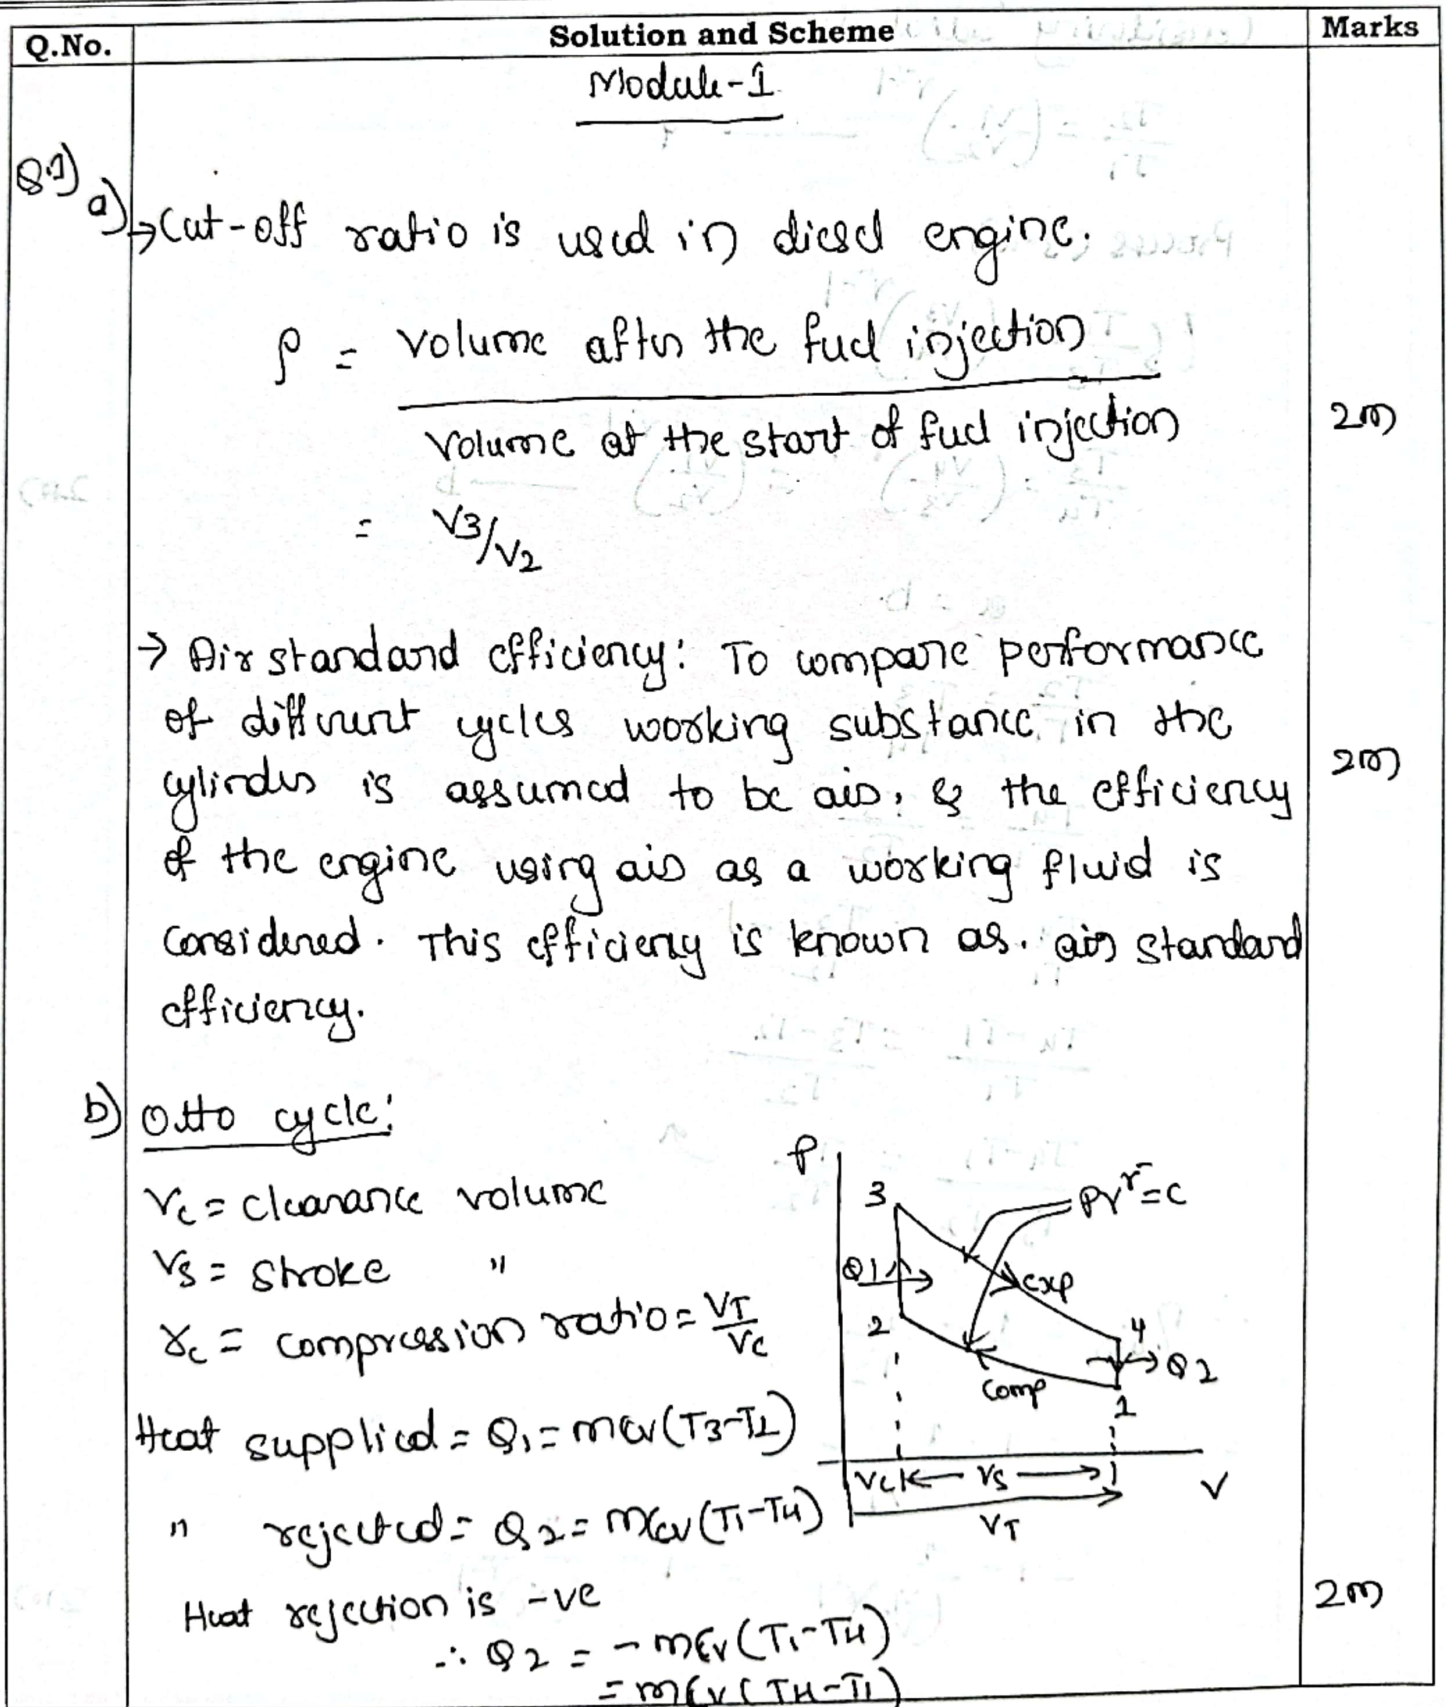 Q.No. Solution and Scheme Marks
Module-1
Q.1) a) → Cut-off ratio is used in diesel engine.
ρ = volume after the fuel injection
volume at the start of fuel injection 2m
= V3/V2
→ Air standard efficiency: To compare performance
of different cycles working substance in the
cylinder is assumed to be air, & the efficiency 2m
of the engine using air as a working fluid is
considered. This efficiency is known as. air standard
efficiency.
b) Otto cycle:
Vc = clearance volume
Vs = stroke "
γc = compression ratio = VT/Vc
Heat supplied = Q1 = mcv(T3-T2)
" rejected = Q2 = mcv(T1-T4)
Heat rejection is -ve 2m
∴ Q2 = -mcv(T1-T4)
= mcv(T4-T1)
P
3
PVʳ=C
Q1
exp
2
4
Q2
comp
1
Vc Vs
V
VT